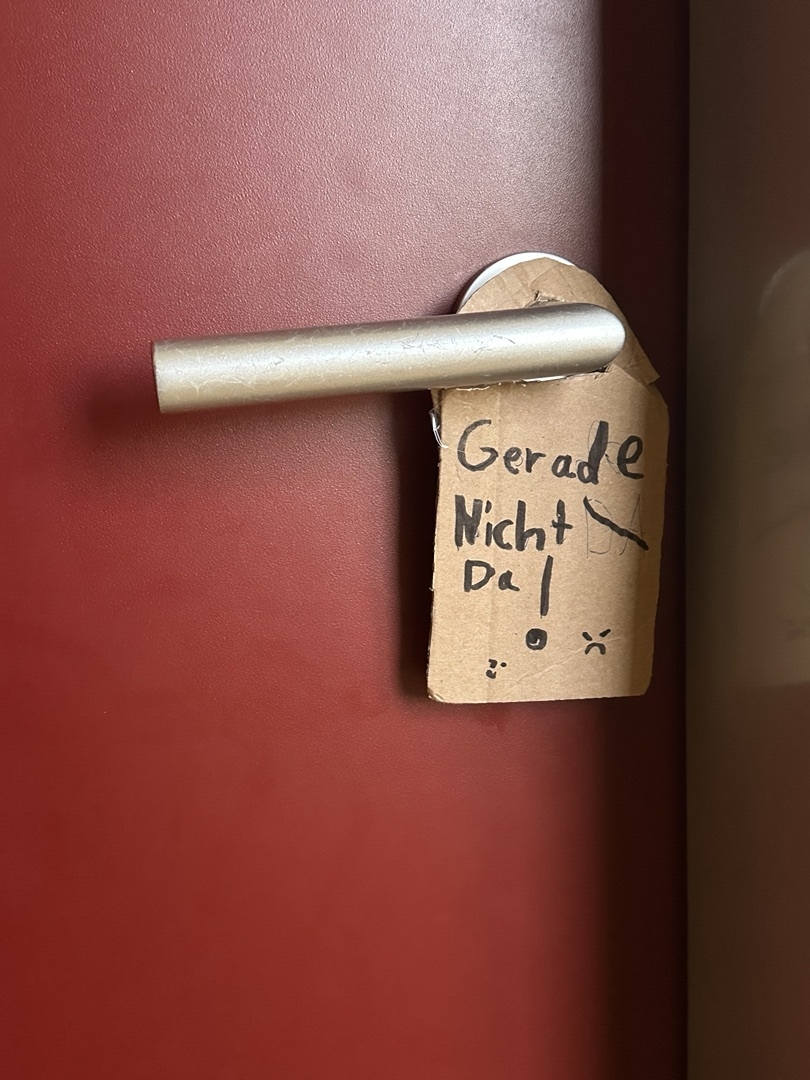 Gerade
Nicht
Da!